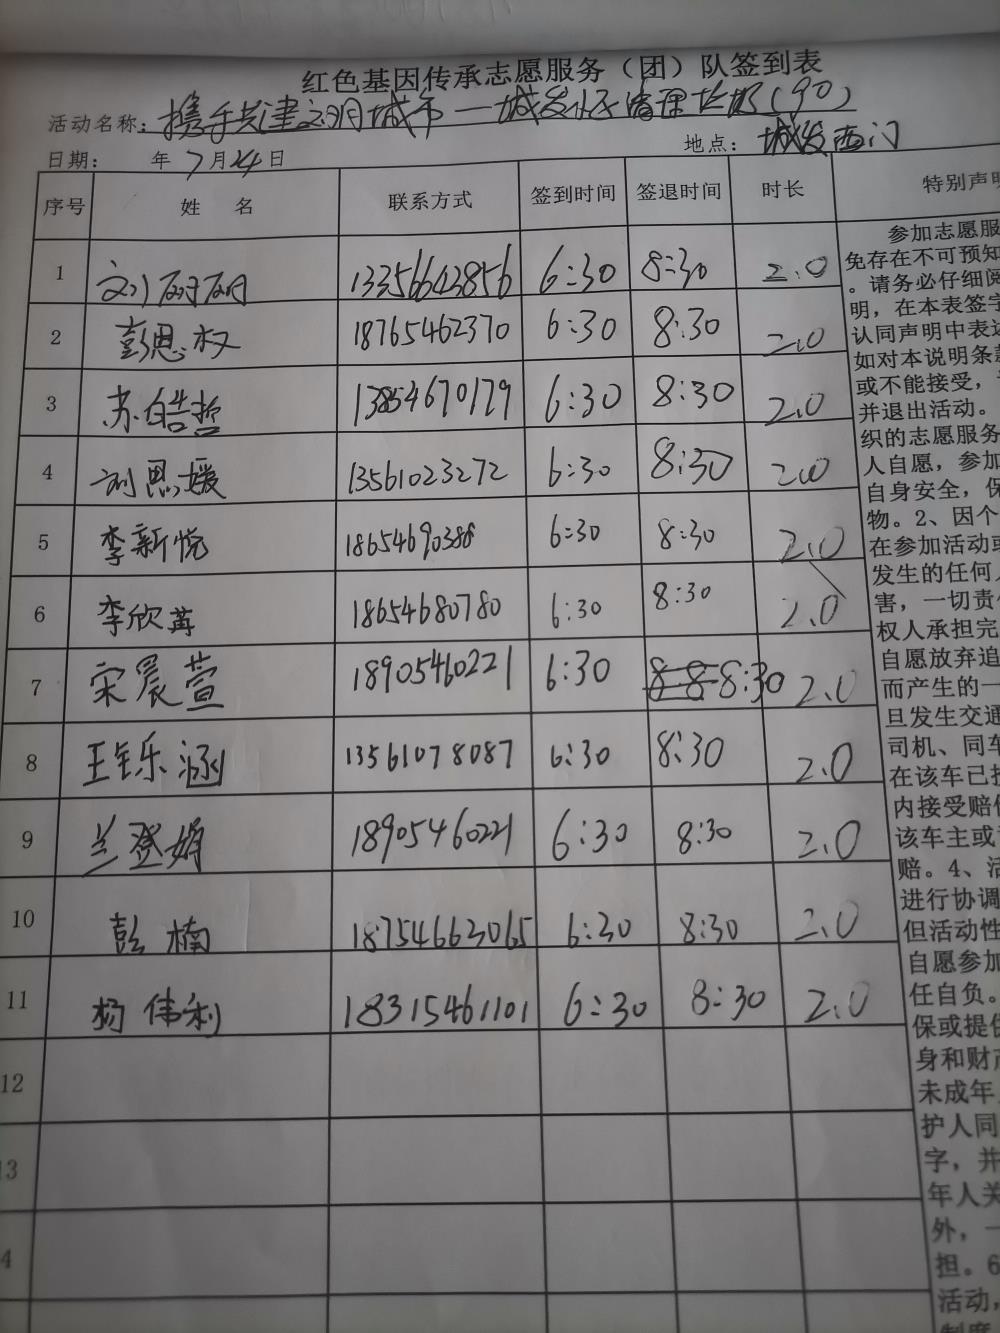 红色基因传承志愿服务（团）队签到表
活动名称：携手共建文明城市一城发
日期： 年 7 月 24 日 地点：城发西门
序号 姓 名 联系方式 签到时间 签退时间 时长 特别声明
1 13356643856 6:30 8:30 2.0
2 彭思权 18765462370 6:30 8:30 2.0
3 苏皓哲 13854670179 6:30 8:30 2.0
4 刘思媛 13561023272 6:30 8:30 2.0
5 李新悦 18654690388 6:30 8:30 2.0
6 李欣苒 18654680780 6:30 8:30 2.0
7 宋晨萱 18905460221 6:30 8:30 2.0
8 王钰乐涵 13561078087 6:30 8:30 2.0
9 兰登娟 18905460221 6:30 8:30 2.0
10 彭楠 18754663065 6:30 8:30 2.0
11 杨伟利 18315461101 6:30 8:30 2.0
12
13
4
参加志愿服
免存在不可预知
。请务必仔细阅
明，在本表签字
认同声明中表达
如对本说明条款
或不能接受，
并退出活动。
织的志愿服务
人自愿，参加
自身安全，保
物。2、因个
在参加活动或
发生的任何
害，一切责任
权人承担完
自愿放弃追
而产生的一
旦发生交通
司机、同车
在该车已投
内接受赔偿
该车主或
赔。4、活
进行协调
但活动性
自愿参加
任自负。
保或提供
身和财产
未成年
护人同
字，并
年人关
外，一
担。6
活动，
制度